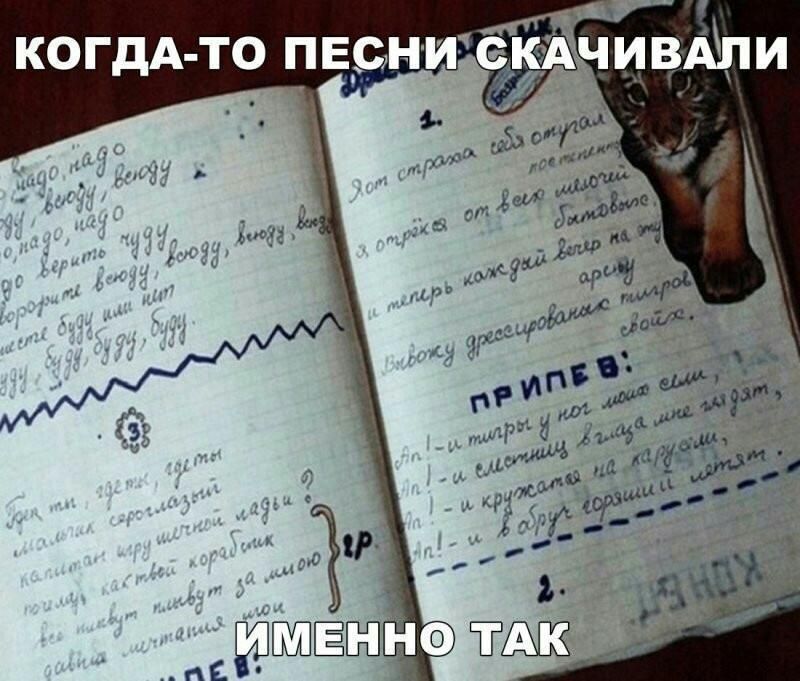 КОГДА-ТО ПЕСНИ СКАЧИВАЛИ
надо, надо
всюду, всюду
надо, надо
верить чуду
всюду, всюду, всюду,
буду или нет
буду, буду, буду.
3
ты, где ты, где ты
мальчик сероглазый
капитан игрушечной ладьи?
как твой кораблик
все плывут плывут за мною
давние мечтания мои
2р.
ПРИПЕВ:
Дрессировщик.
1.
Я от страха себя отучал
постепенно,
я отрёкся от всех мелочей
бытовых,
и теперь каждый вечер на эту
арену
Вывожу дрессированых тигров
своих.
ПРИПЕВ:
Ап!-и тигры у ног моих сели,
Ап!-и с лестниц в глаза мне глядят,
Ап!-и кружатся на карусели,
Ап!-и в обруч горящий летят.
2.
КОНЕЦ
ИМЕННО ТАК